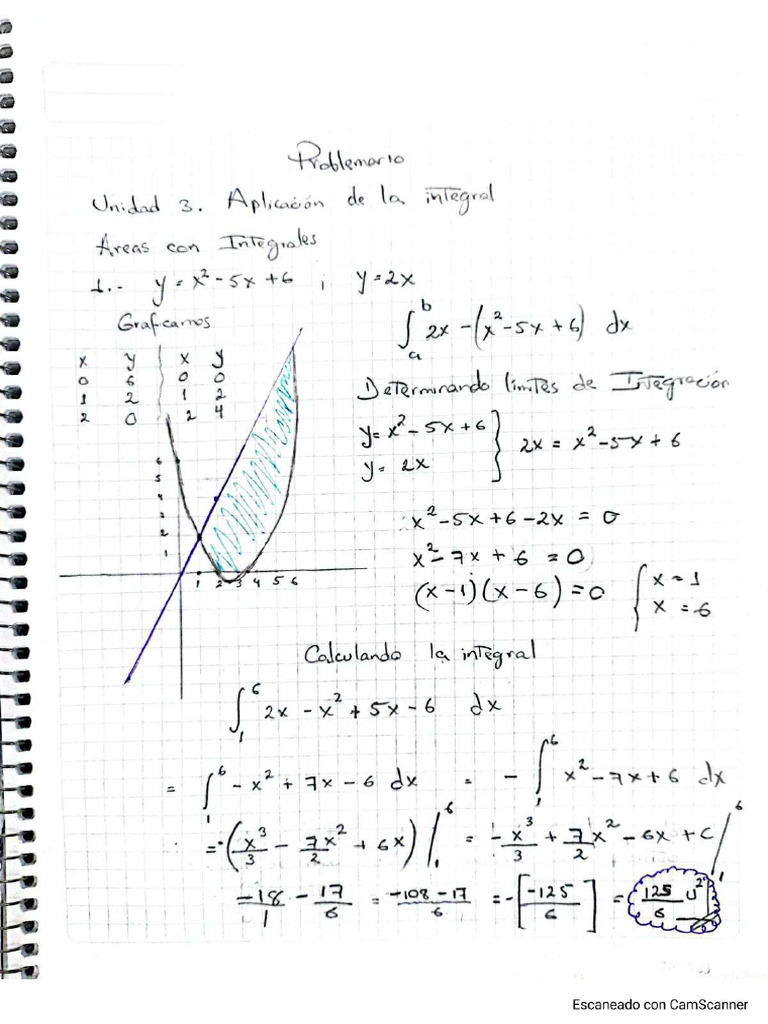 Problemario
Unidad 3. Aplicación de la integral
Areas con Integrales
1.- y = x² - 5x + 6 ; y = 2x
Graficamos
x y x y
0 6 0 0
1 2 1 2
2 0 2 4
6
5
4
3
2
1
1 2 3 4 5 6
∫ₐᵇ 2x - (x² - 5x + 6) dx
Determinando limites de Integración
y = x² - 5x + 6
y = 2x } 2x = x² - 5x + 6
x² - 5x + 6 - 2x = 0
x² - 7x + 6 = 0
(x - 1)(x - 6) = 0 { x = 1
x = 6
Calculando la integral
∫₁⁶ 2x - x² + 5x - 6 dx
= ∫₁⁶ - x² + 7x - 6 dx = - ∫₁⁶ x² - 7x + 6 dx
= -(x³/3 - 7x²/2 + 6x) /₁⁶ = -x³/3 + 7x²/2 - 6x + C /₁⁶
-18/1 - 17/6 = -108 - 17/6 = -[-125/6] = 125/6 u²
Escaneado con CamScanner